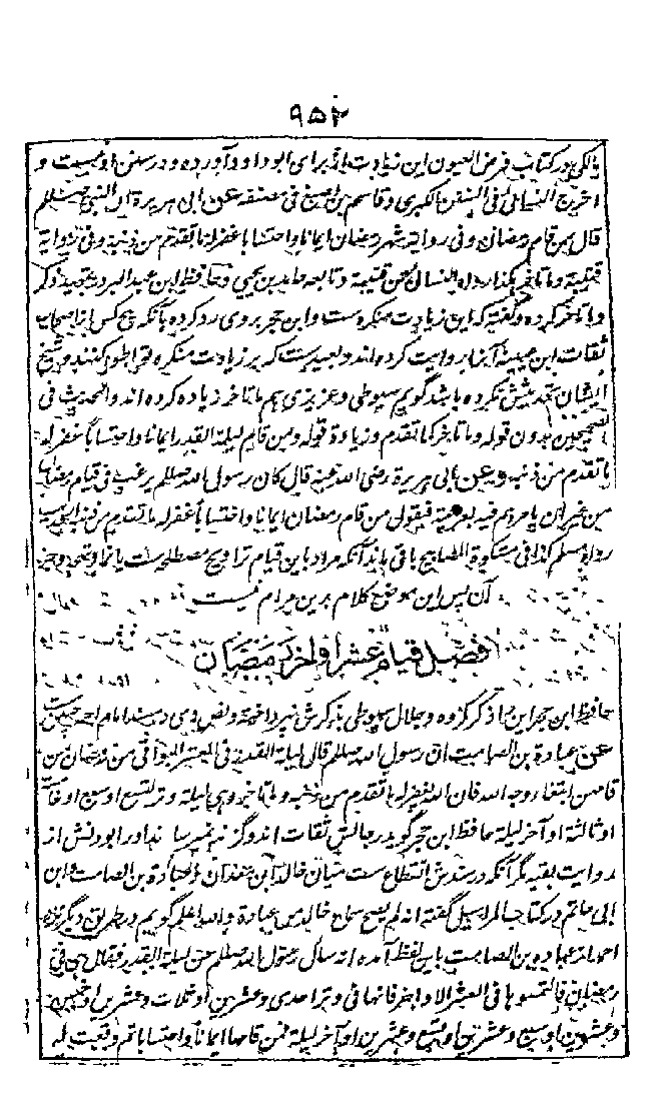 ۹۵۲
مالکی در کتاب فرض العیون این زیادت از برای ابو داود آورده و در سنن او نیست و
اخرج النسائی فی السنن الکبری و قاسم بن اصبغ فی مصنفه عن ابی هریرة ان النبی صلعم
قال من قام رمضان و فی روایة شهر رمضان ایمانا و احتسابا غفر له ما تقدم من ذنبه و فی روایة
قتیبة و ما تاخر کذا رواه النسائی عن قتیبة و تابعه حامد بن یحیی و حافظ ابن عبد البر در تمهید ذکر
و ما تاخر کرده و گفته که این زیادت منکره ست و ابن حجر بروی رد کرده بآنکه هیچ کس از اصحاب
ثقات ابن عیینه آنرا روایت کرده اند و بعید ست که بر زیادت منکره تواطؤ کنند و شیخ
ایشان تحدیثش نکرده باشد گویم سیوطی و عزیزی هم ما تاخر زیاده کرده اند و الحدیث فی
الصحیحین بدون قوله و ما تاخر کما تقدم و زیادة قوله و من قام لیلة القدر ایمانا و احتسابا غفر له
ما تقدم من ذنبه و عن ابی هریرة رضی الله عنه قال کان رسول الله صلعم یرغب فی قیام رمضان
من غیر ان یامرهم فیه بعزیمة فیقول من قام رمضان ایمانا و احتسابا غفر له ما تقدم من ذنبه الحدیث
رواه مسلم کذا فی مشکوة المصابیح باقی ماند آنکه مراد باین قیام تراویح مصطلحه ست یا نماز تهجد و جز
آن پس این موضع کلام برین مرام نیست
فصل قیام عشر اواخر رمضان
حافظ ابن حجر این را ذکر کرده و جلال سیوطی بذکرش نپرداخته و نص وی در مسند امام احمد
عن عبادة بن الصامت ان رسول الله صلعم قال لیلة القدر فی العشر البواقی من رمضان من
قامهن ابتغاء وجه الله فان الله یغفر له ما تقدم من ذنبه و ما تاخر و هی لیلة و تر لتسع او سبع او خامسة
او ثالثة او آخر لیلة حافظ ابن حجر گوید رجالش ثقات اند و گزندی نمیرساند
روایت بقیه مگر آنکه در سندش انقطاع ست میان خالد ابن معدان و عبادة بن الصامت و ابن
ابی حاتم در کتاب المراسیل گفته انه لم یصح سماع خالد من عبادة والله اعلم گویم در طریق دیگر نزد
احمد از عباده بن الصامت باین لفظ آمده انه سأل رسول الله صلعم عن لیلة القدر فقال هی فی
رمضان فالتمسوها فی العشر الاواخر فانها فی وتر احدی و عشرین او ثلاث و عشرین او خمس
و عشرین او سبع و عشرین او تسع و عشرین او آخر لیلة فمن قامها ایمانا و احتسابا ثم وقعت له